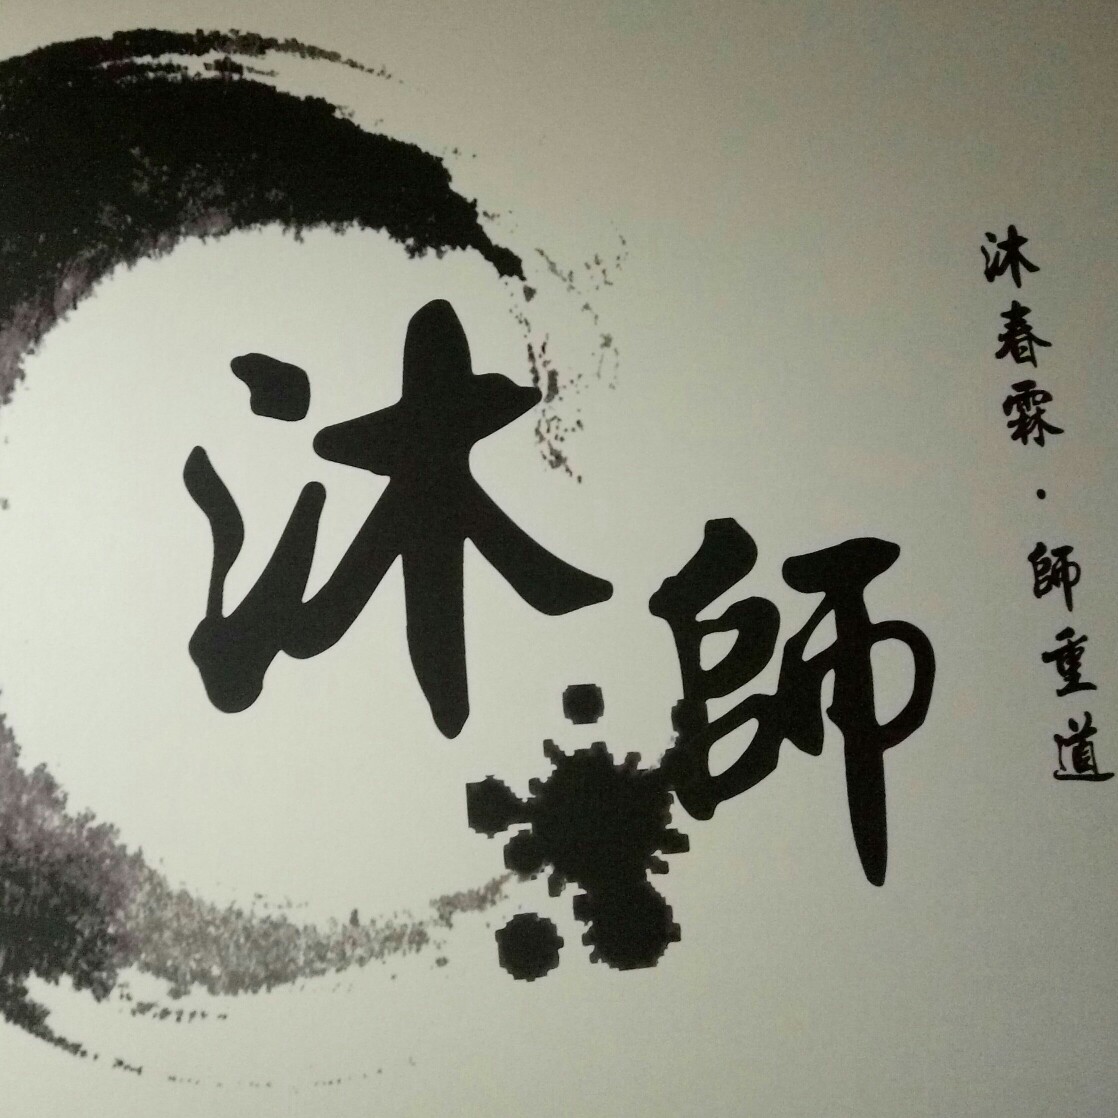 沐師
沐春霖·師重道